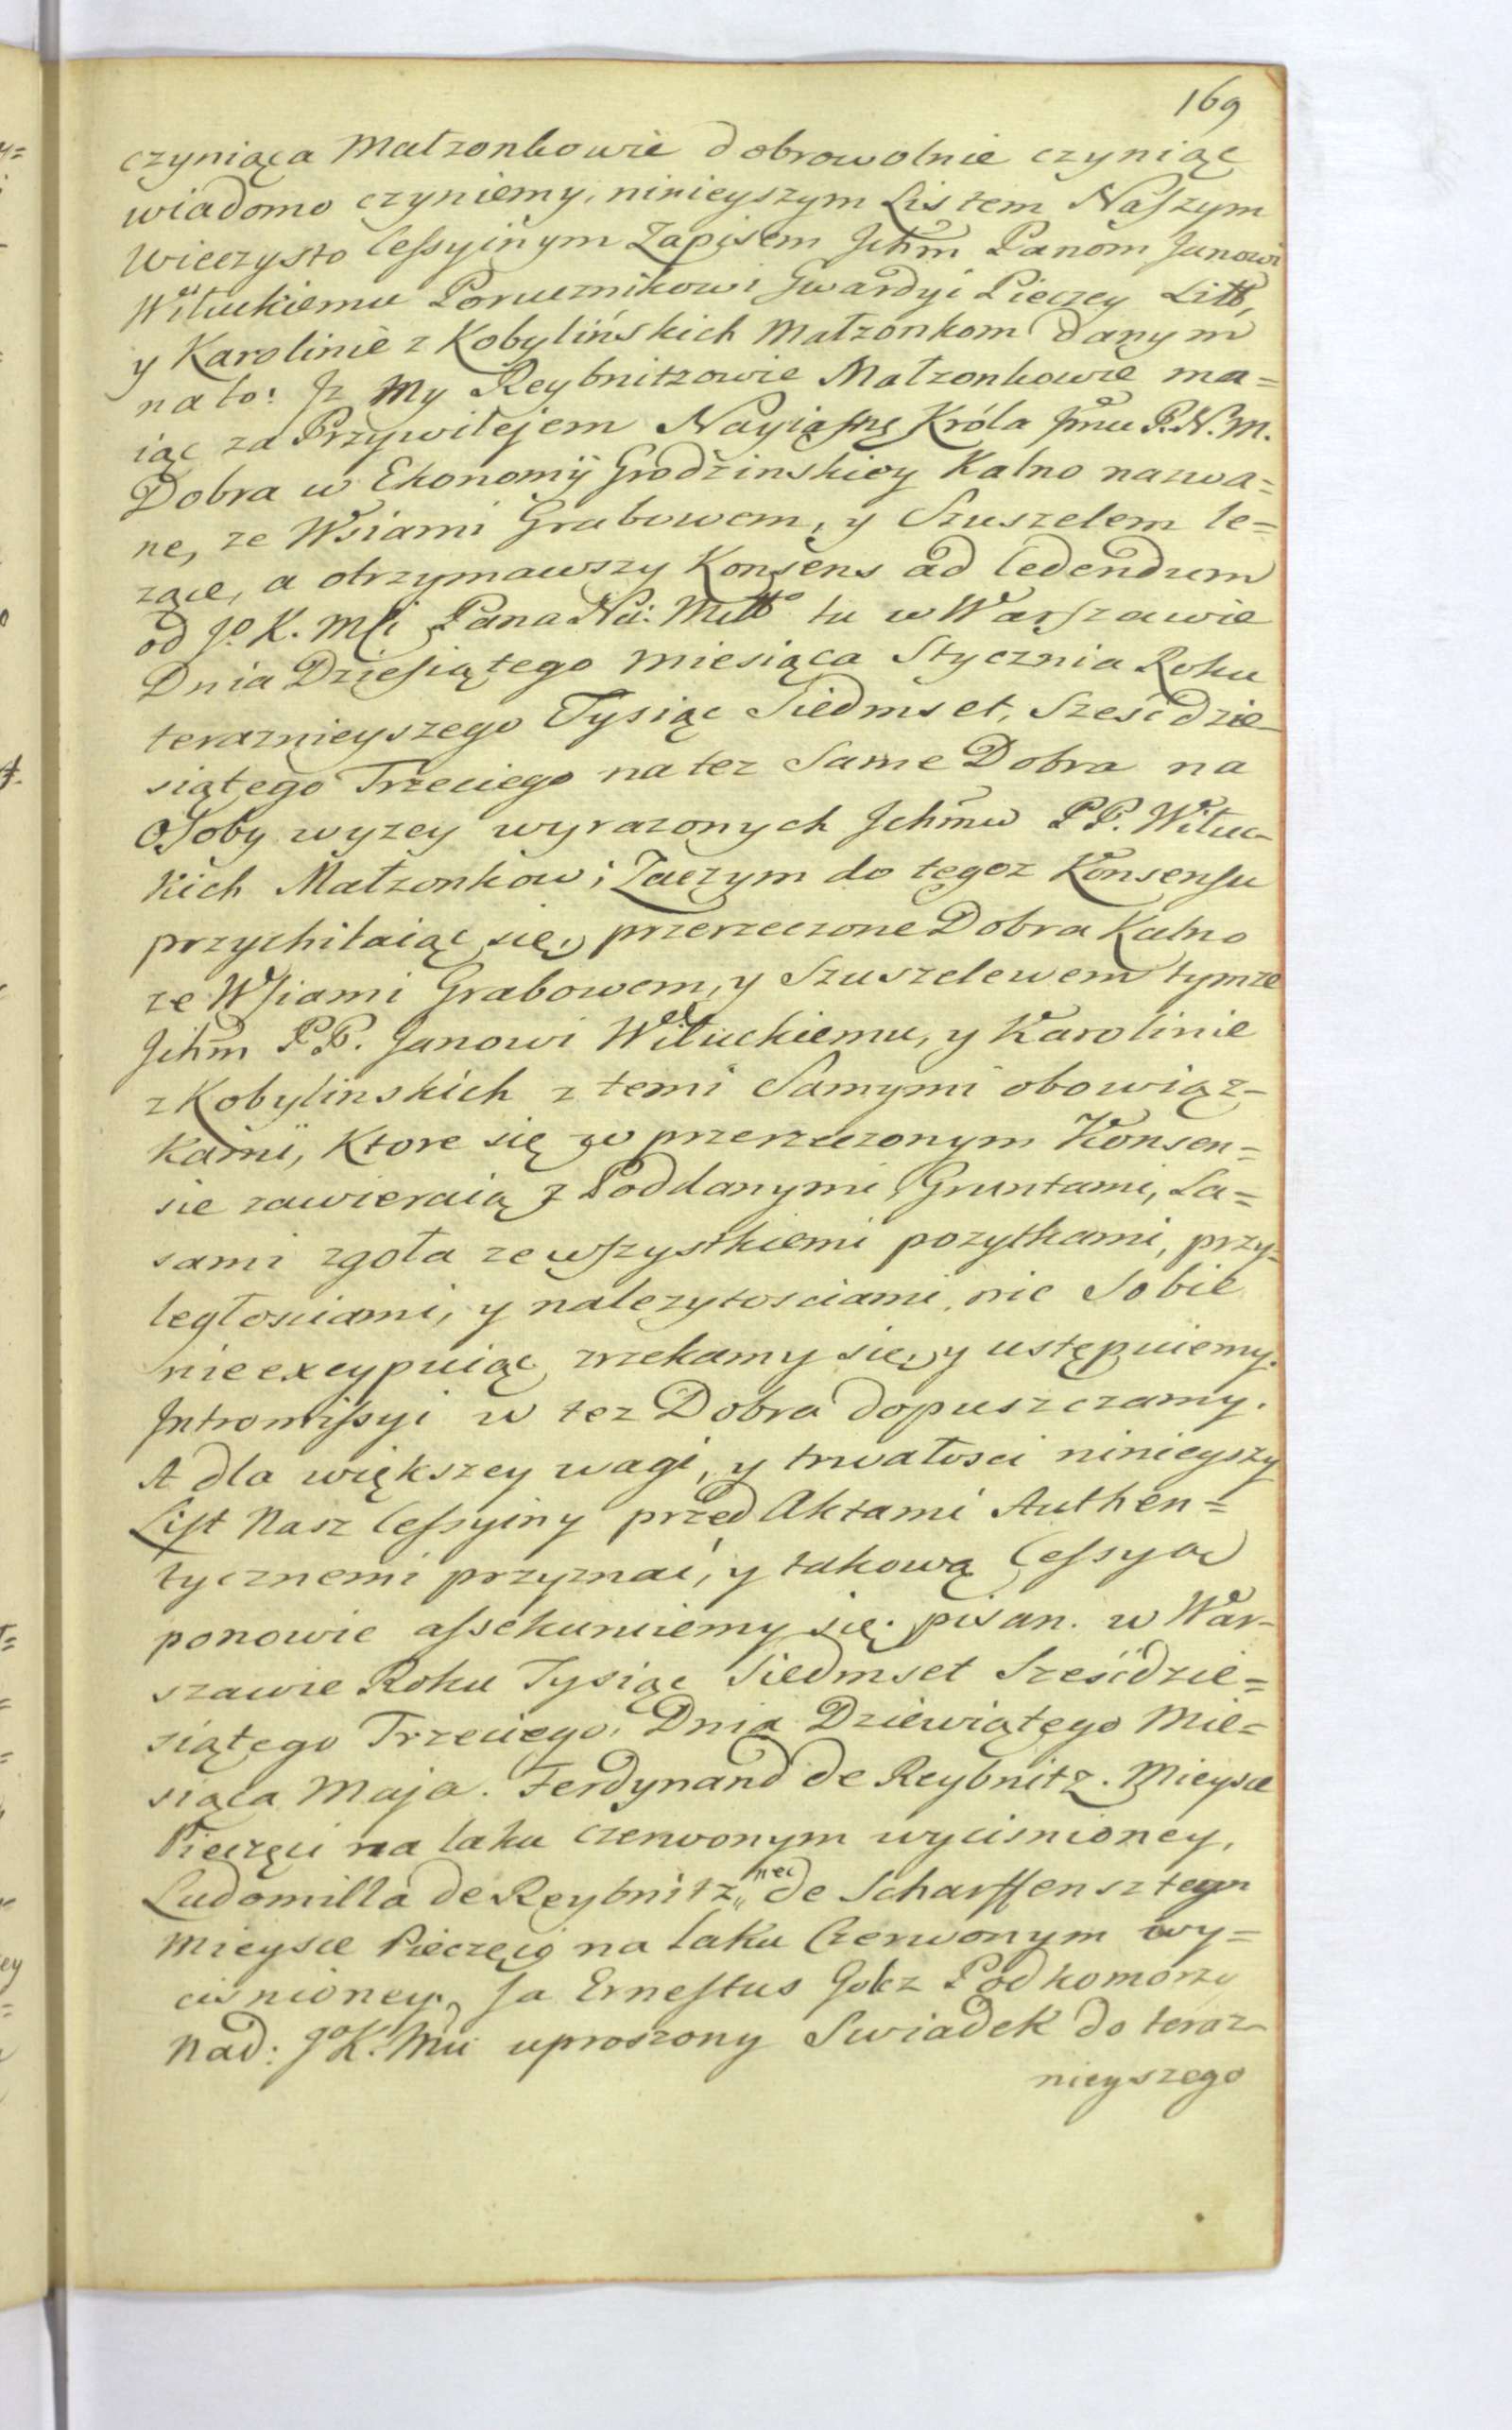 169
czyniąca Małzonkowie dobrowolnie czyniąc
wiadomo czyniemy, ninieyszym Listem Naszym
Wieczysto Cessyinym Zapisem Ichm Panom Janowi
Wiłuckiemu Porucznikowi Gwardyi Pieszey Litt,
y Karolinie z Kobylińskich Małzonkom danym
na to: Iz My Reybnitzowie Małzonkowie ma=
iąc za Przywilejem Nayiasnę Króla Jmci P. N. M.
Dobra w Ekonomij Grodzinskiey Kalno nazwa=
ne, ze Wsiami Grabowem, y Szuszelem le=
zące, a otrzymawszy Konsens ad Cedendum
od Jo K. Msci Pana Na: Mttο tu w Warszawie
Dnia Dziesiątego Miesiąca Stycznia Roku
teraznieyszego Tysiąc Siedmset, Sześcdzie-
siątego Trzeciego na tez Same Dobra na
Osoby wyzey wyrazonych Ichmw PP. Wiłuc-
kich Małzonkow; Zaczym do tegoz Konsensu
przychilaiąc się, przerzeczone Dobra Kalno
ze Wsiami Grabowem, y Szuszelewem tymze
Ichm PP. Janowi Wiłuckiemu, y Karolinie
z Kobylinskich z temi Samymi obowiąz-
kami, Ktore się w przerzeczonym Konsen=
sie zawieraią z Poddanymi, Gruntami, La=
sami zgoła ze wszystkiemi pozytkami, przy-
ległosciami, y nalezytosciami, nic Sobie
nie excypuiąc, zrzekamy się, y ustępuiemy.
Intromissyi w tez Dobra dopuszczamy.
A dla większey wagi, y trwałosci ninieyszy
List Nasz Cessyiny przed Aktami Authen=
tycznemi przyznać, y takową Cessyą
ponowic assekuruiemy się. pisan. w War-
szawie Roku Tysiąc Siedmset Sześcdzie=
siątego Trzeciego, Dnia Dziewiątego Mie=
siąca Maja. Ferdynand de Reybnitz. Mieysce
Pieczęci na laku czerwonym wycisnioney,
Ludomilla de Reybnitz, nec de Scharffenszteyn
Mieysce Pieczęci na laku Czerwonym wy=
cisnioney. Ja Ernestus Goltz Podkomorzy
Nad: Jo K. Mci uproszony Swiadek do teraz-
nieyszego